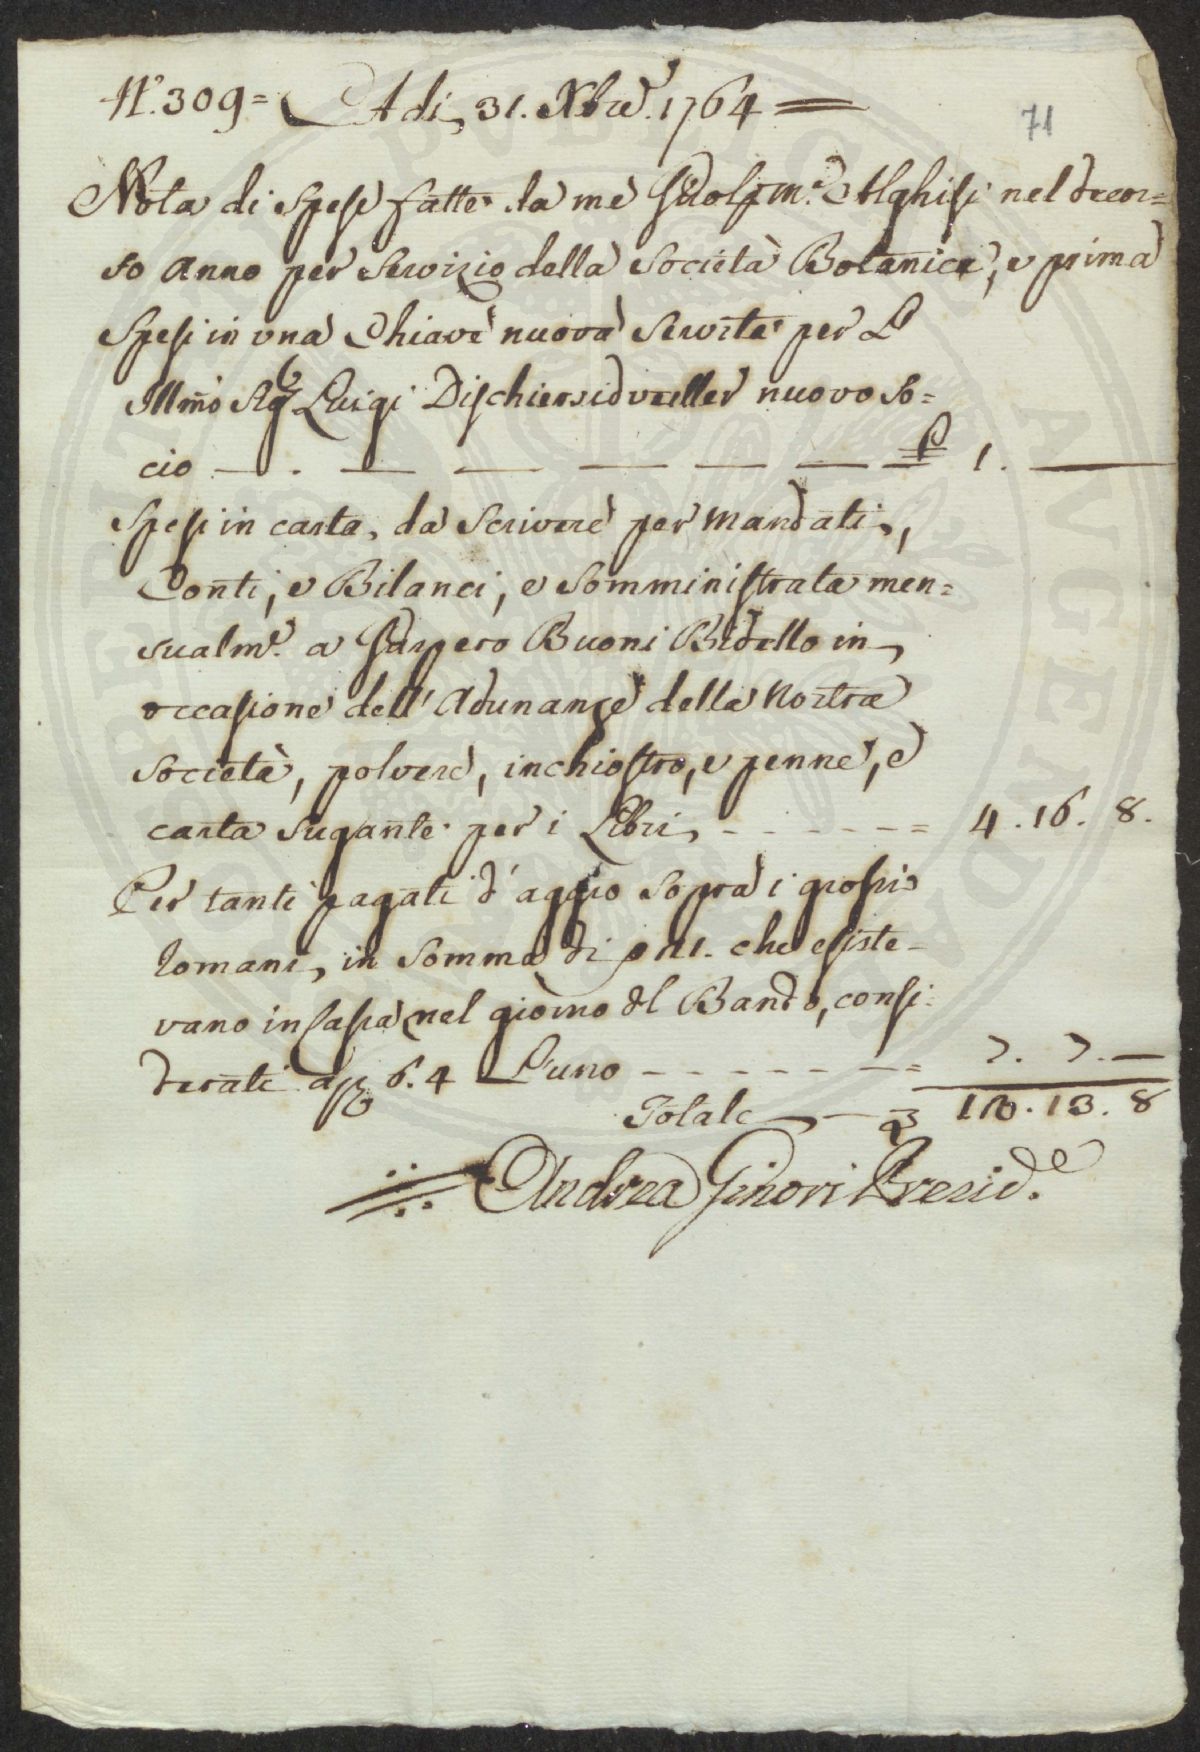 N.° 309 = Adi, 31. Xbre. 1764 =
71
Nota di Spese fatte da me Alghisi nel decor=
so Anno per Servizio della Società Botanica, e prima
Spesi in una Chiave nuova Servita per L'
Illmo Sig Luigi nuovo So=
cio — . — — — — — 1. —
Spesi in carta, da Scrivere per Mandati,
Conti, e Bilanci, e Somministrata men=
sualmte. a Gaspero Buoni Bidello in
occasione dell'Adunanze della Nostra
Società, polvere, inchiostro, e penne, e
carta Sugante per i Libri, - - - - - - = 4. 16. 8.
Per tanti pagati d'aggio Sopra i grossi
Romani, in Somma di che esiste-
vano in Cassa nel giorno del Bando, consi-
derati a 6. 4 L'uno - - - - - - = 7. 7. —
Totale — 13. 8
Andrea Ginori Presid.e
PVBLICAE AVGENDAE